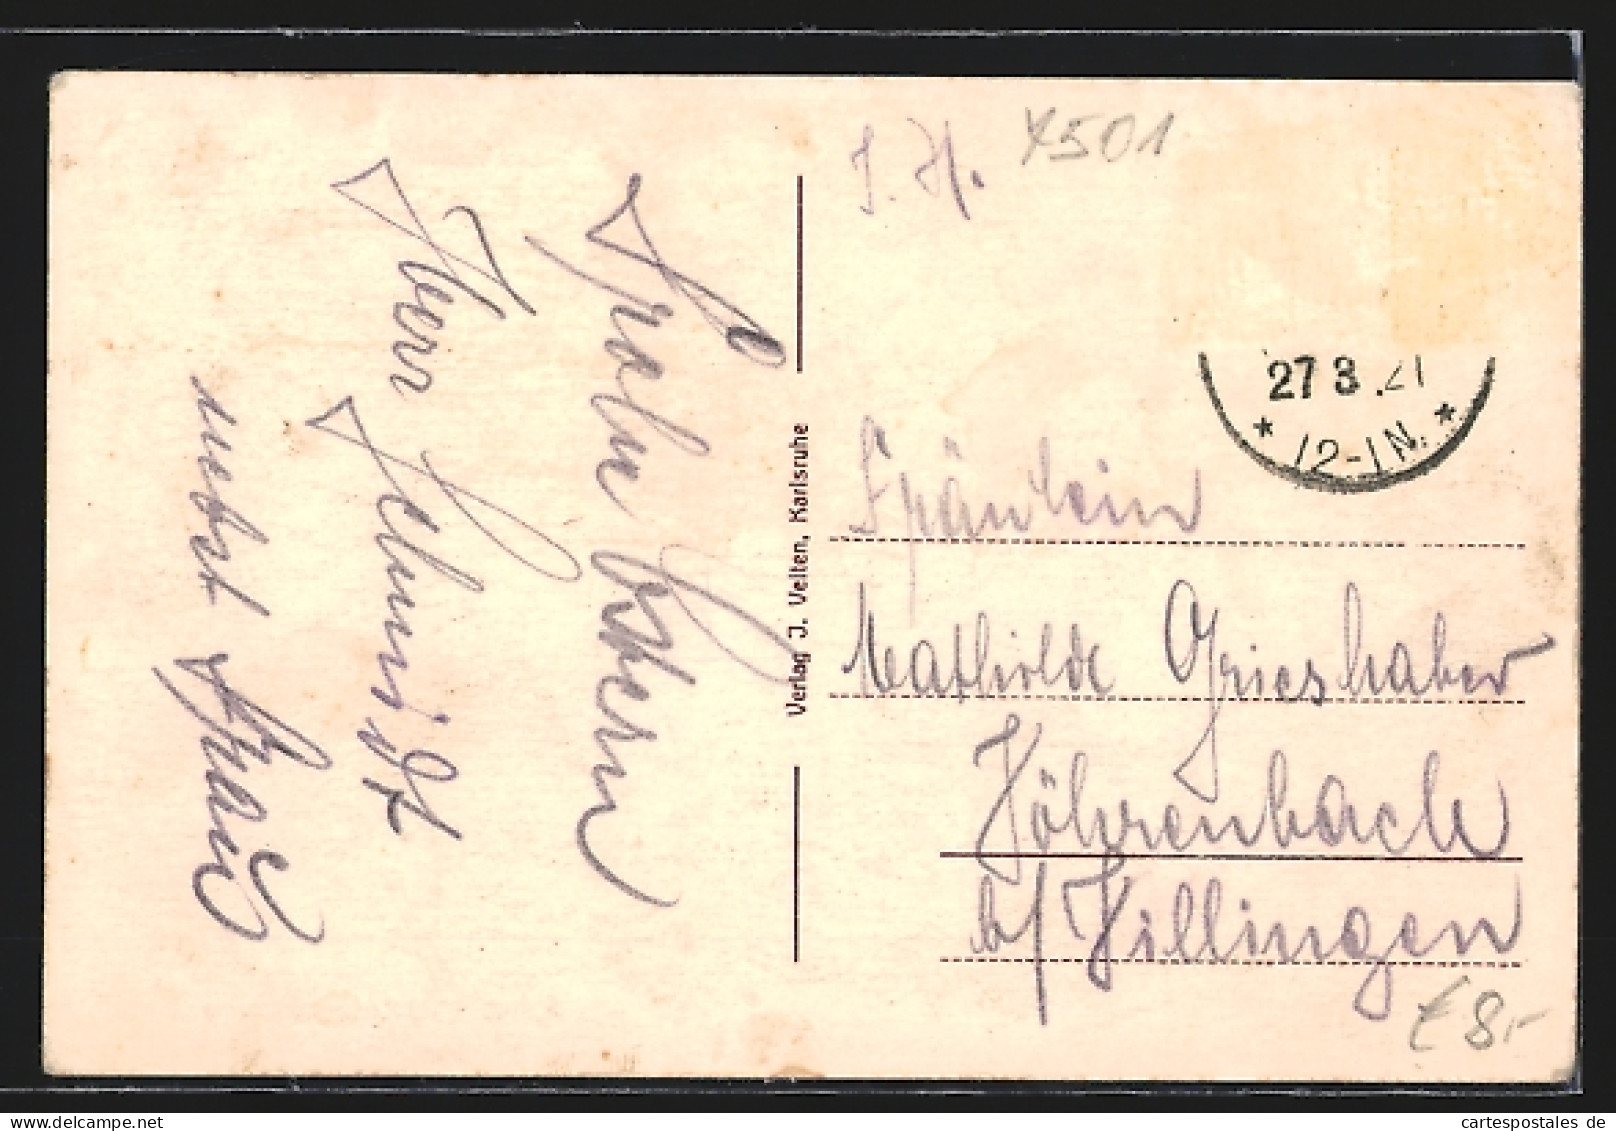 Frohe Ostern
Herr Schmidt
nebst Frau
Verlag J. Velten, Karlsruhe
J. H.
7501
27 3 .21
* 12-1 N. *
Fräulein
Mathilde Grieshaber
Vöhrenbach
b/Villingen
€ 8,-
cartespostales de